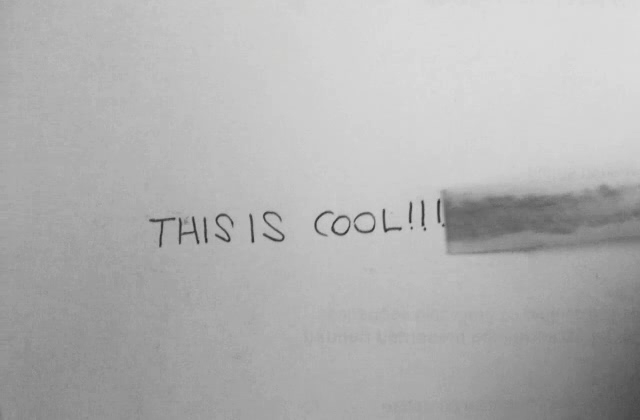 THIS IS COOL!!!